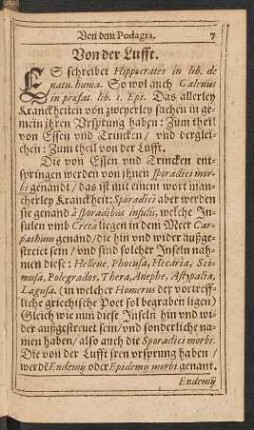 Von dem Podagra. 7
Von der Lufft.
ES schreibet Hippocrates in lib. de
natu. huma. So wol auch Galenus
in præfat. lib. 1. Epi. Das allerley
Kranckheiten von zweyerley sachen in ge-
mein jhren Vrsprung haben: Zum theil
von Essen vnd Trincken/ vnd derglei-
chen: Zum theil von der Lufft.
Die von Essen vnd Trincken ent-
springen werden von jhnen Sporadici mor-
bi genandt/ das ist mit einem wort man-
cherley Kranckheit: Sporadici aber werden
sie genand à sporadibus insulis, welche In-
sulen vmb Creta liegen in dem Meer Car-
pathum genand/ die hin vnd wider außge-
streiet sein/ vnd sind solcher Inseln nah-
men diese: Helene, Phocusa, Hecaria, Sci-
musa, Polegrados, Thera, Anephe, Astypalia,
Lagusa. (in welcher Homerus der vortreff-
liche griechische Poet sol begraben ligen)
Gleich wie nun diese Inseln hin vnd wi-
der außgestreuet sein/ vnd sonderliche na-
men haben/ also auch die Sporadici morbi.
Die von der Lufft jren vrsprung haben/
werdē Endemij oder Epidemij morbi genant.
Endemij